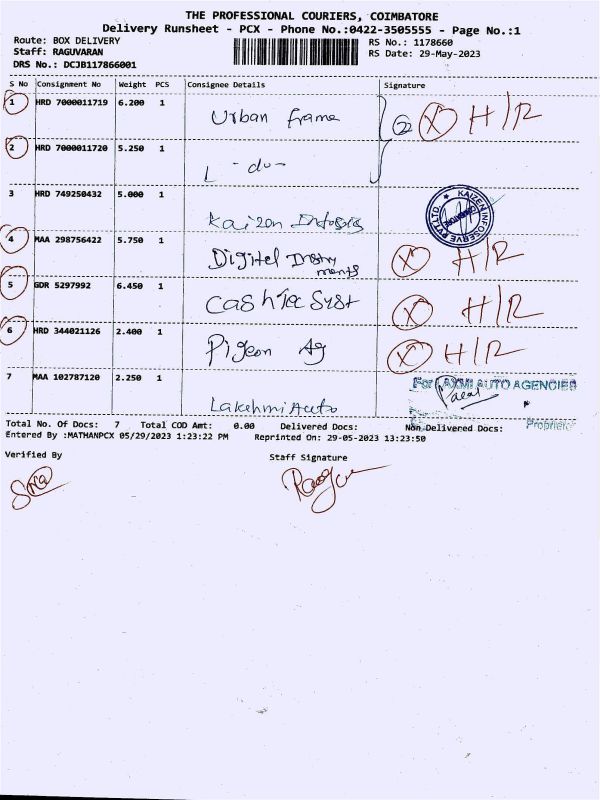 THE PROFESSIONAL COURIERS, COIMBATORE
Delivery Runsheet - PCX - Phone No.:0422-3505555 - Page No.:1
Route: BOX DELIVERY
Staff: RAGUVARAN
DRS No.: DCJB117866001
RS No.: 1178660
RS Date: 29-May-2023
S No Consignment No Weight PCS Consignee Details Signature
1 HRD 7000011719 6.200 1 Urban frame (2) X H/R
2 HRD 7000011720 5.250 1 L -do-
3 HRD 749250432 5.000 1 Kaizen Infoseis KAIZEN INFOSERVE PVT LTD
4 MAA 298756422 5.750 1 Digitel Instruments X H/R
5 GDR 5297992 6.450 1 CashTec Syst X H/R
6 HRD 344021126 2.400 1 Pigeon Ag X H/R
7 MAA 102787120 2.250 1 Lakshmi Auto For LAXMI AUTO AGENCIES
Proprietor
Total No. Of Docs: 7 Total COD Amt: 0.00 Delivered Docs: Non Delivered Docs:
Entered By :MATHANPCX 05/29/2023 1:23:22 PM Reprinted On: 29-05-2023 13:23:50
Verified By Staff Signature